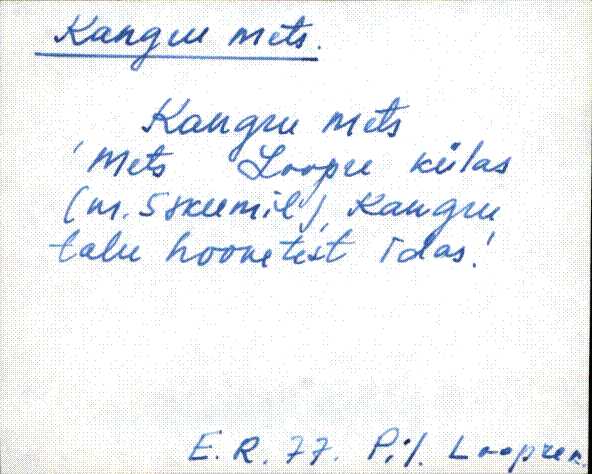 Kangru mets.
Kangru mets
'Mets Loopre külas
(m. Soomil), Kangru
talu hoonetest idas.'
E. R. 77. Pil. Loopre k.